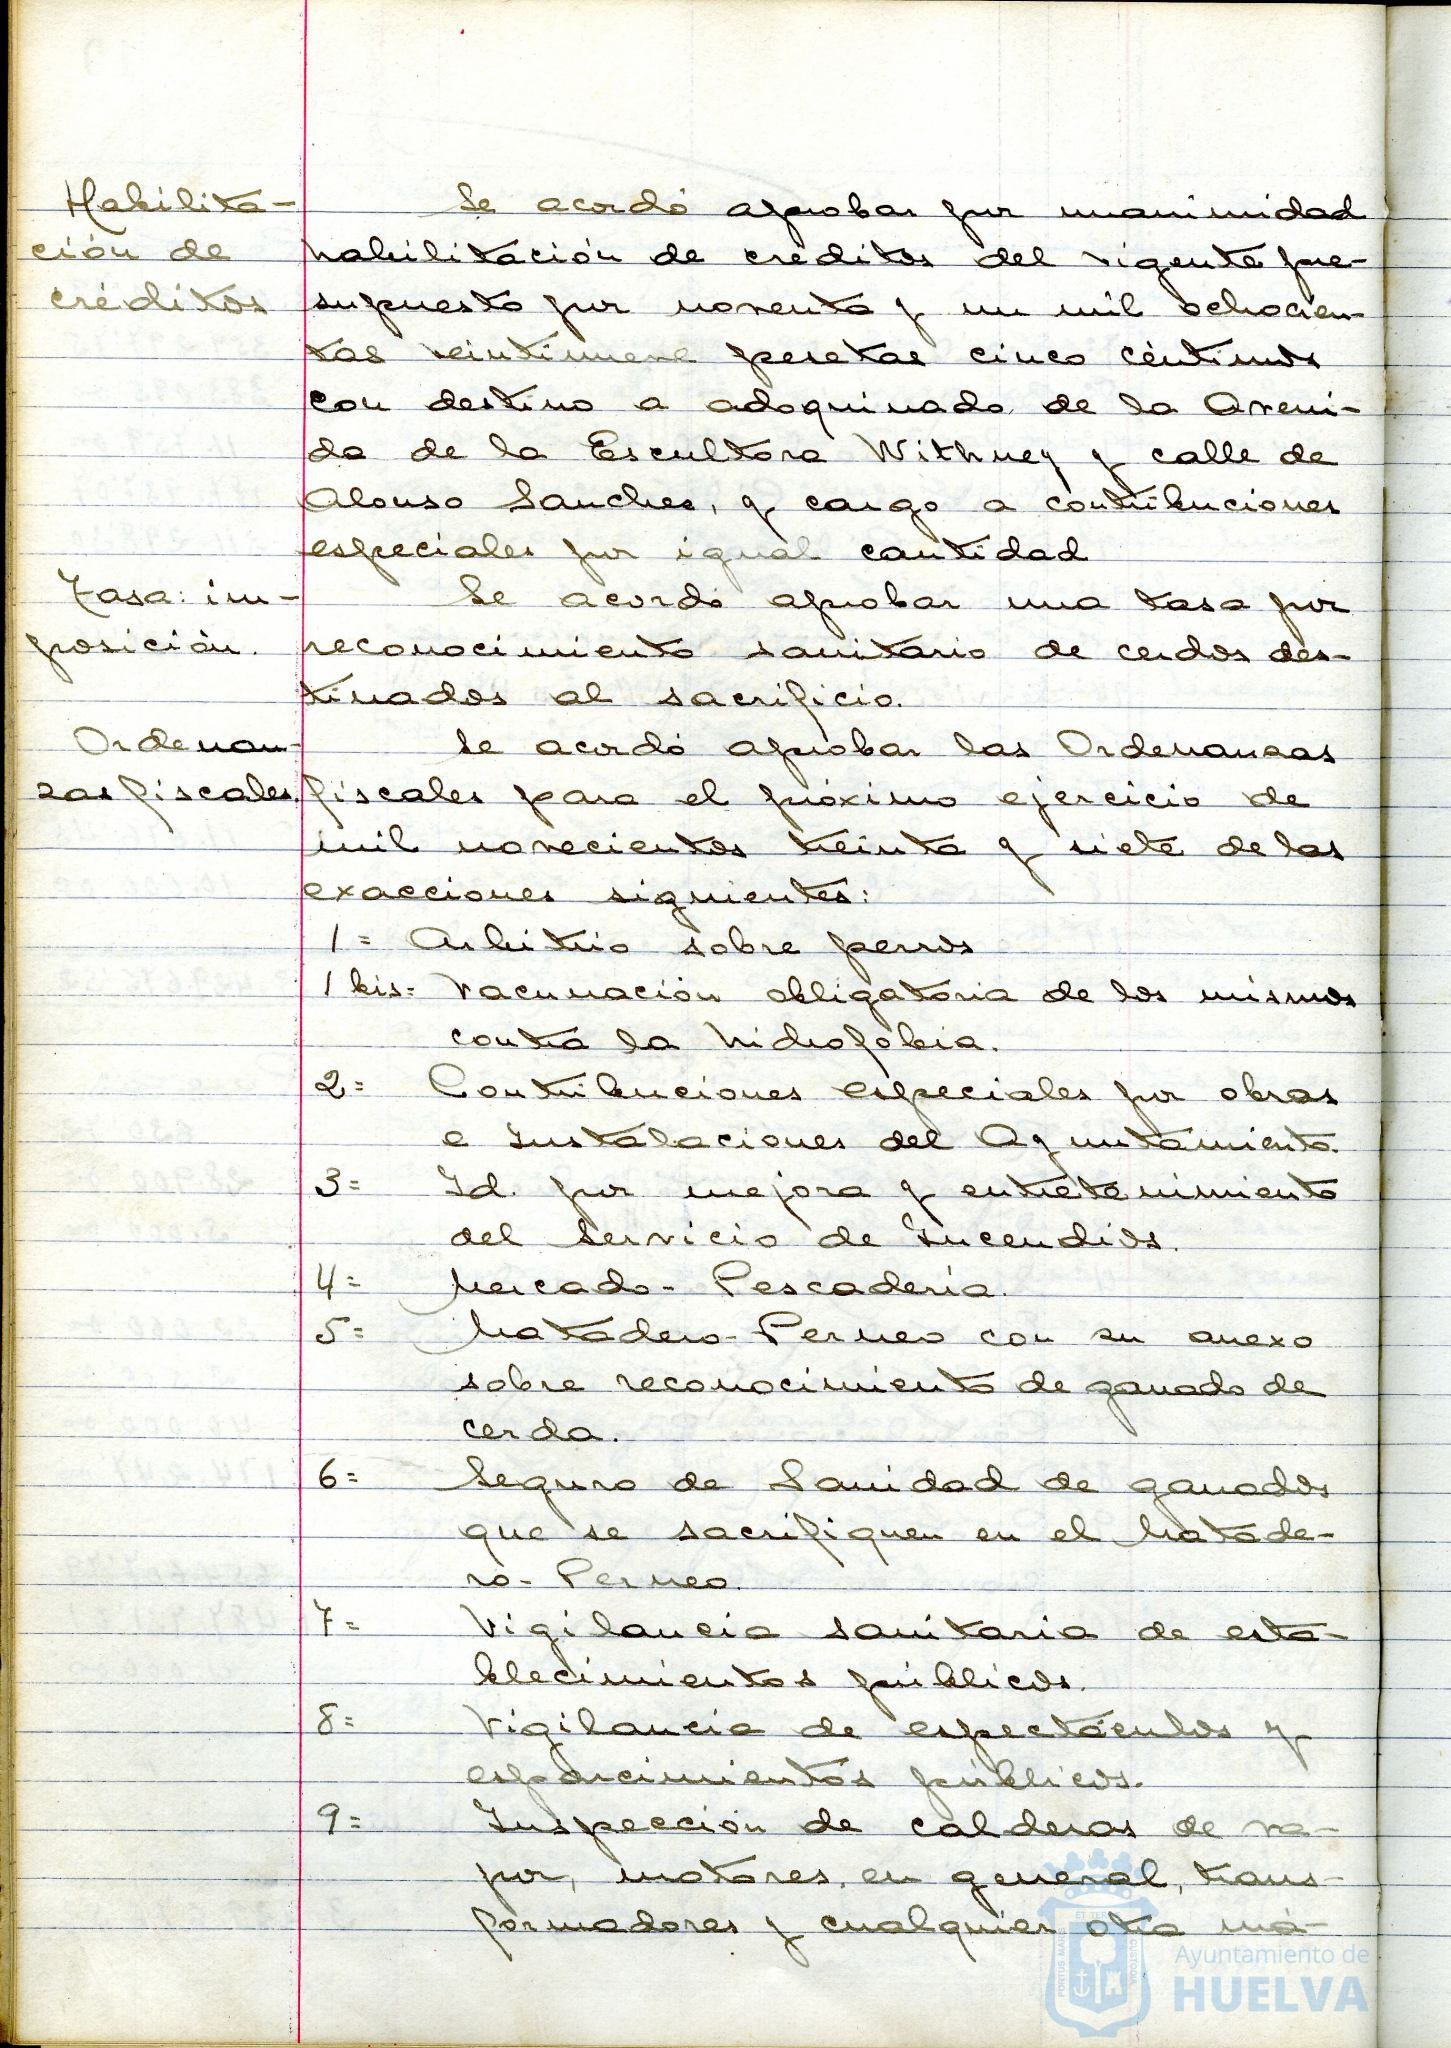 Habilita-
ción de
créditos
Se acordó aprobar por unanimidad
habilitación de créditos del vigente pre-
supuesto por noventa y un mil ochocien-
tas veintinueve pesetas cinco céntimos
con destino a adoquinado de la Aveni-
da de la Escultora Withney y calle de
Alonso Sanchez, y cargo a contribuciones
especiales por igual cantidad
Tasa: im-
posición.
Se acordó aprobar una tasa por
reconocimiento sanitario de cerdos des-
tinados al sacrificio.
Ordenan-
zas fiscales.
Se acordó aprobar las Ordenanzas
fiscales para el próximo ejercicio de
mil novecientos treinta y siete de las
exacciones siguientes:
1= Arbitrio sobre perros
1 bis= Vacunación obligatoria de los mismos
contra la hidrofobia.
2= Contribuciones especiales por obras
e Instalaciones del Ayuntamiento.
3= Id. por mejora y entretenimiento
del Servicio de Incendios.
4= Mercado-Pescadería.
5= Matadero-Perneo con su anexo
sobre reconocimiento de ganado de
cerda.
6= Seguro de Sanidad de ganados
que se sacrifiquen en el Matade-
ro-Perneo.
7= Vigilancia sanitaria de esta-
blecimientos públicos.
8= Vigilancia de espectáculos y
esparcimientos públicos.
9= Inspección de calderas de va-
por, motores, en general, trans-
formadores y cualquier otra má-
Ayuntamiento de
HUELVA